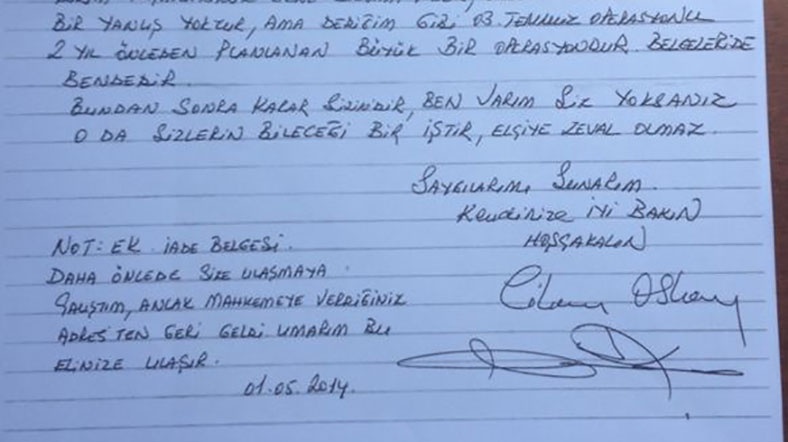 BİR YANLIŞ YOKTUR, AMA DEDİĞİM GİBİ 03. TEMMUZ OPERASYONU
2 YIL ÖNCEDEN PLANLANAN BÜYÜK BİR OPERASYONDUR. BELGELERİDE
BENDEDİR.
BUNDAN SONRA KARAR SİZİNDİR, BEN VARIM SİZ YOKSANIZ
O DA SİZLERİN BİLECEĞİ BİR İŞTİR, ELÇİYE ZEVAL OLMAZ.
SAYGILARIMI SUNARIM.
Kendinize İYİ BAKIN
HOŞÇAKALIN
NOT: EK İADE BELGESİ.
DAHA ÖNCEDE SİZE ULAŞMAYA
ÇALIŞTIM, ANCAK MAHKEMEYE VERDİĞİNİZ
ADRES'TEN GERİ GELDİ UMARIM BU
ELİNİZE ULAŞIR.
01.05.2014.